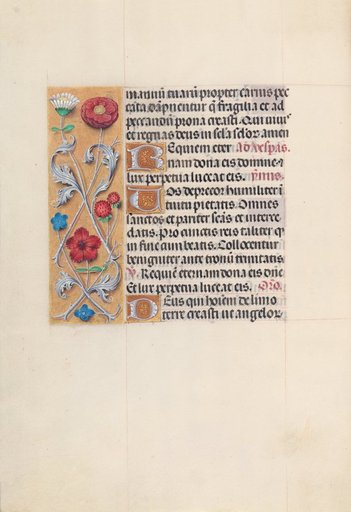 manuū tuarū propter carius pec
cata dāpnentur q̄ fragilia et ad
peccandū prona creasti. Qui viuis
et regnas deus in sc̄la sc̄lor amen
Requiem eter ad vespas.
nam dona eis domine ⁊
lux perpetua luceat eis. ymns.
Uos deprecor humiliter in
tuitu pietatis. Omnes
sanctos et pariter scās et interce
datis. Pro cunctis reis taliter q̄
in fine cum beatis. Collocentur
benigniter ante tronū trinitatis
℣. Requiē eternam dona eis dn̄e
Et lux perpetua luceat eis. Oro.
Deus qui hoīem de limo
terre creasti ut angelor